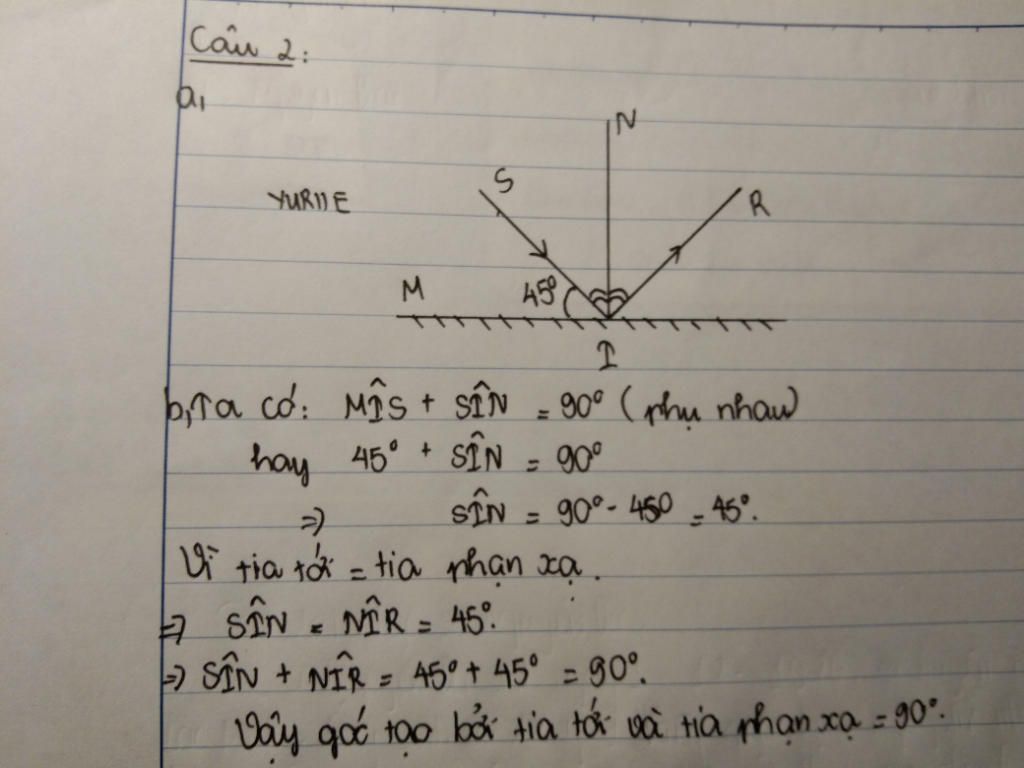 Câu 2:
a,
N
S
YURIIE
R
M
45°
I
b, Ta có: MÎS + SÎN = 90° (phụ nhau)
hay 45° + SÎN = 90°
=> SÎN = 90° - 450 = 45°.
Vì tia tới = tia phạn xạ.
=> SÎN = NÎR = 45°.
=> SÎN + NÎR = 45° + 45° = 90°.
Vậy góc tạo bởi tia tới và tia phạn xạ = 90°.